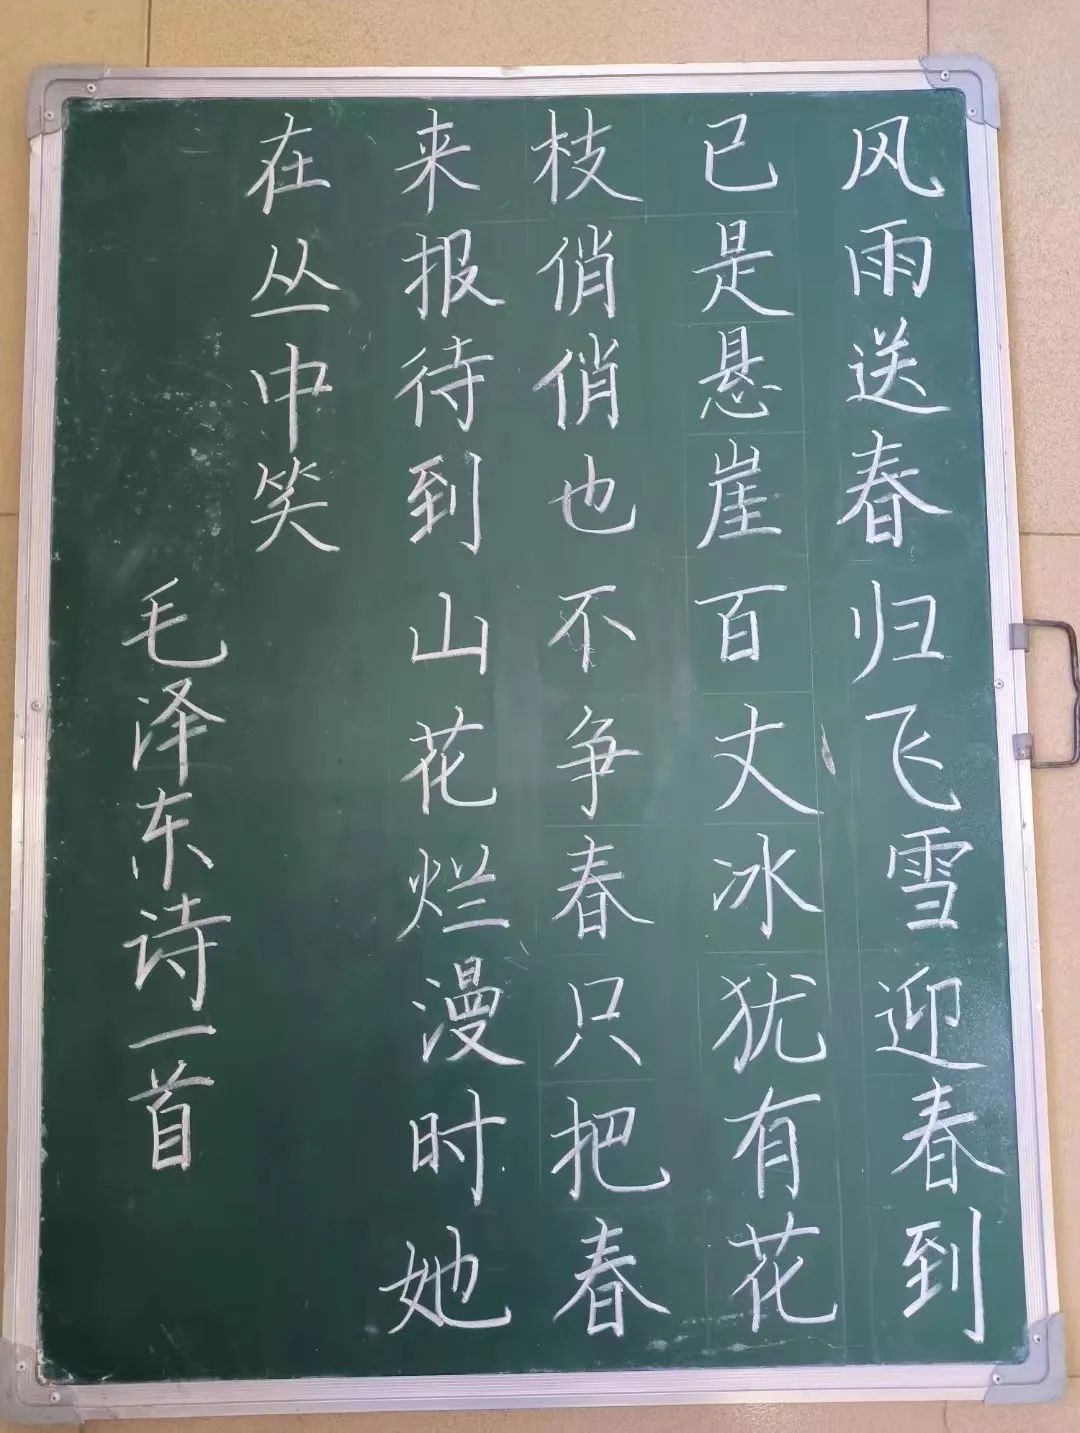 风雨送春归飞雪迎春到
已是悬崖百丈冰犹有花
枝俏俏也不争春只把春
来报待到山花烂漫时她
在丛中笑
毛泽东诗一首